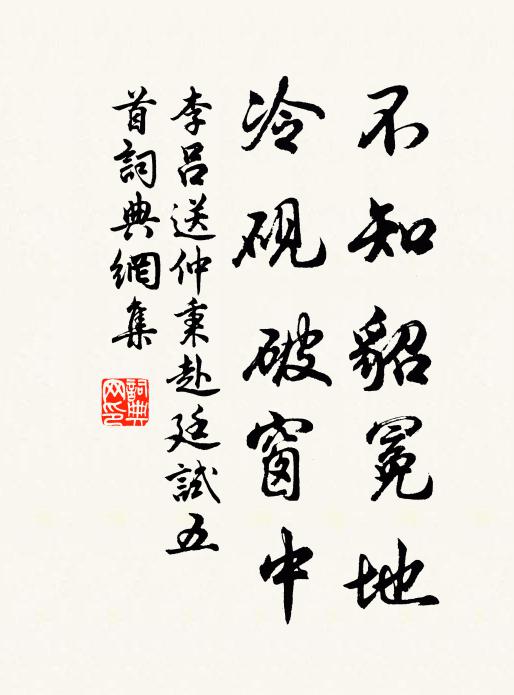 不知貂冕地
冷硯破窗中
李呂送仲秉赴廷試五
首詞典網集
詞典
网印